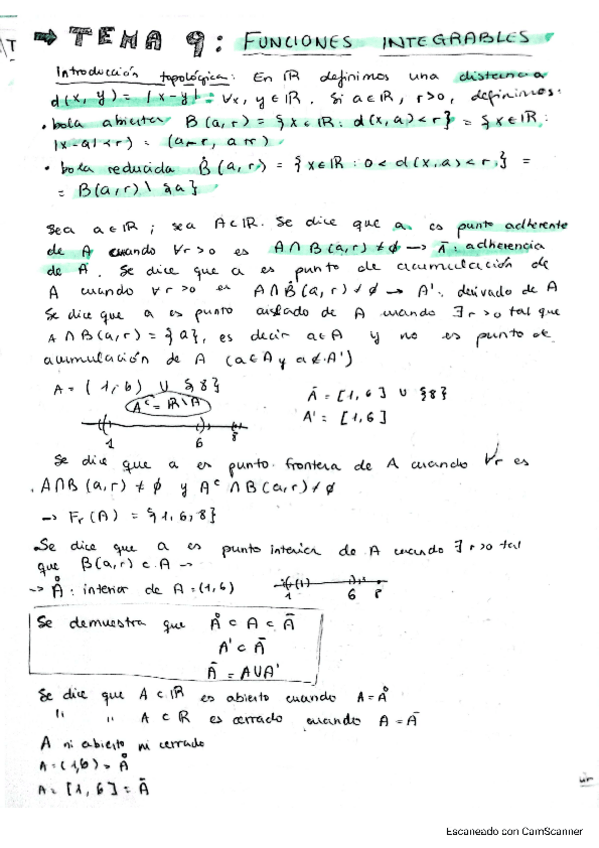 ⇒ TEMA 9: FUNCIONES INTEGRABLES
Introducción topológica: En ℝ definimos una distancia
d(x, y) = |x-y| ∀x, y ∈ ℝ. Si a ∈ ℝ, r>0, definimos:
• bola abierta B(a,r) = {x ∈ ℝ: d(x,a) < r} = {x ∈ ℝ:
|x-a| < r} = (a-r, a+r)
• bola reducida B̊(a,r) = {x ∈ ℝ: 0 < d(x,a) < r} =
= B(a,r) \ {a}
Sea a ∈ ℝ; sea A ⊂ ℝ. Se dice que a es punto adherente
de A cuando ∀r>0 es A∩B(a,r) ≠ ∅ → Ā: adherencia
de A. Se dice que a es punto de acumulación de
A cuando ∀r>0 es A∩B̊(a,r) ≠ ∅ → A': derivado de A
Se dice que a es punto aislado de A cuando ∃r>0 tal que
A∩B(a,r) = {a}, es decir a∈A y no es punto de
acumulación de A (a∈A y a∉A')
A = (1,6) ∪ {8}
Ā = [1,6] ∪ {8}
Aᶜ = ℝ\A
A' = [1,6]
1 6 8
Se dice que a es punto frontera de A cuando ∀r es
A∩B(a,r) ≠ ∅ y Aᶜ∩B(a,r) ≠ ∅
→ Fr(A) = {1,6,8}
Se dice que a es punto interior de A cuando ∃r>0 tal
que B(a,r) ⊂ A →
→ Å: interior de A = (1,6)
1 6 8
Se demuestra que Å ⊂ A ⊂ Ā
A' ⊂ Ā
Ā = A∪A'
Se dice que A ⊂ ℝ es abierto cuando A = Å
" " A ⊂ ℝ es cerrado cuando A = Ā
A ni abierto ni cerrado
A = (1,6) = Å
A = [1,6] = Ā
Escaneado con CamScanner